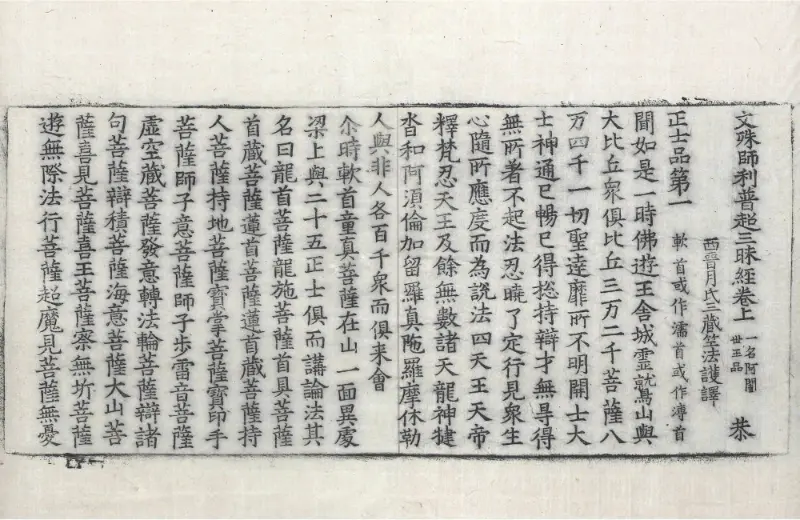 文殊師利普超三昧經卷上 一名阿闍世王品 恭
西晉月氏三藏竺法護譯
正士品第一 軟首或作濡首或作溥首
聞如是一時佛遊王舍城靈鷲山與
大比丘衆俱比丘三万二千菩薩八
万四千一切聖達靡所不明開士大
士神通已暢已得揔持辯才無㝵得
無所著不起法忍曉了定行見衆生
心隨所應度而為說法四天王天帝
釋梵忍天王及餘無數諸天龍神揵
沓和阿須倫加留羅真陁羅摩休勒
人與非人各百千衆而俱来會
尒時軟首童真菩薩在山一面異處
梁上與二十五正士俱而講論法其
名曰龍首菩薩龍施菩薩首具菩薩
首藏菩薩蓮首菩薩蓮首藏菩薩持
人菩薩持地菩薩寶掌菩薩寶印手
菩薩師子意菩薩師子步雷音菩薩
虛空藏菩薩發意轉法輪菩薩辯諸
句菩薩辯積菩薩海意菩薩大山菩
薩喜見菩薩喜王菩薩察無圻菩薩
遊無際法行菩薩超魔見菩薩無憂